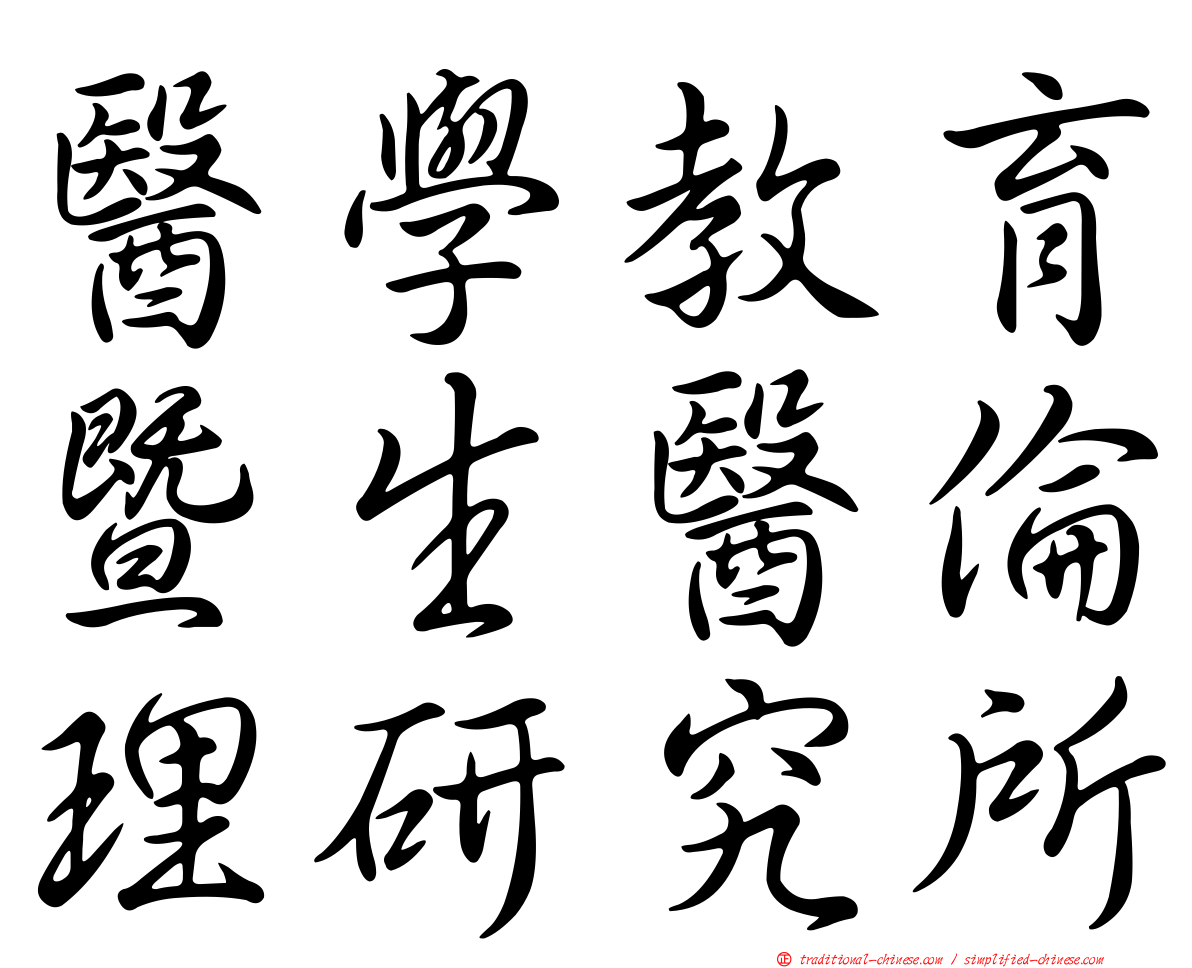 醫學教育
暨生醫倫
理研究所
正 traditional-chinese.com / simplified-chinese.com